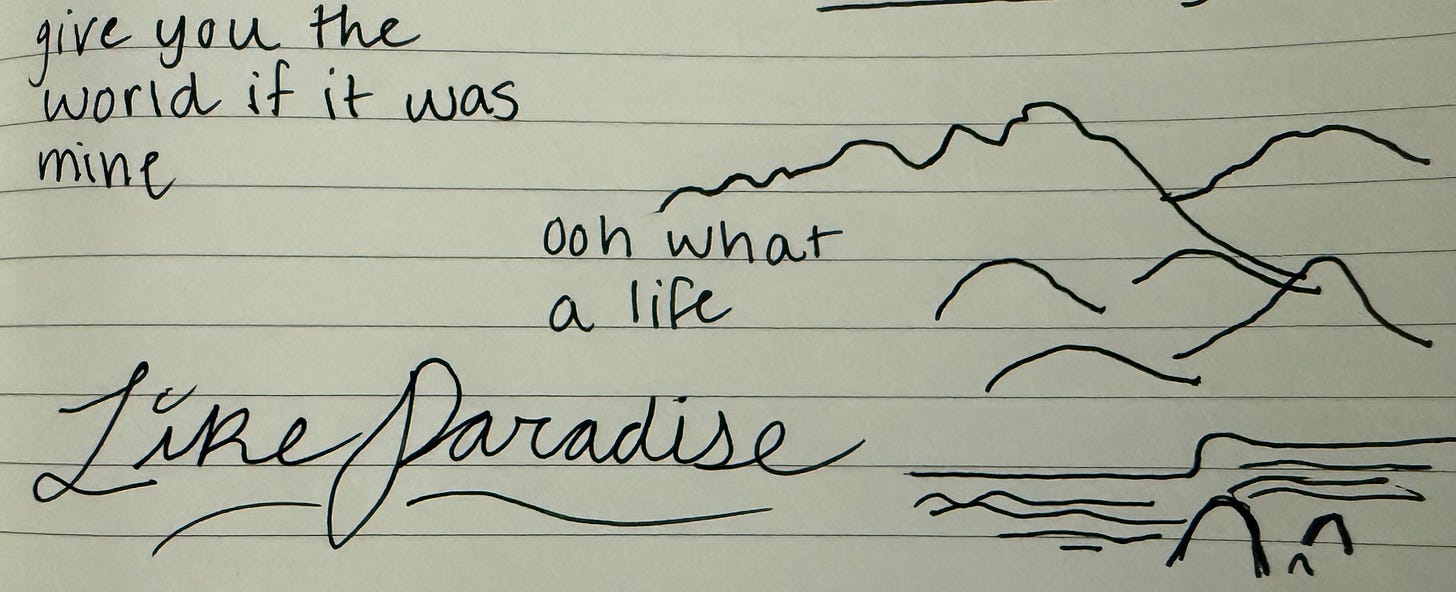 give you the
world if it was
mine
ooh what
a life
Like Paradise